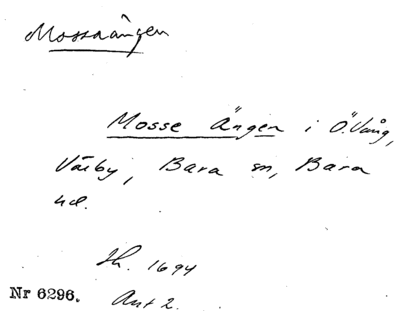 Mossaängen
Mosse Ängen i Ö. Vång,
Värby, Bara sn, Bara
hd.
Jb. 1694
Nr 6296. Ant 2.